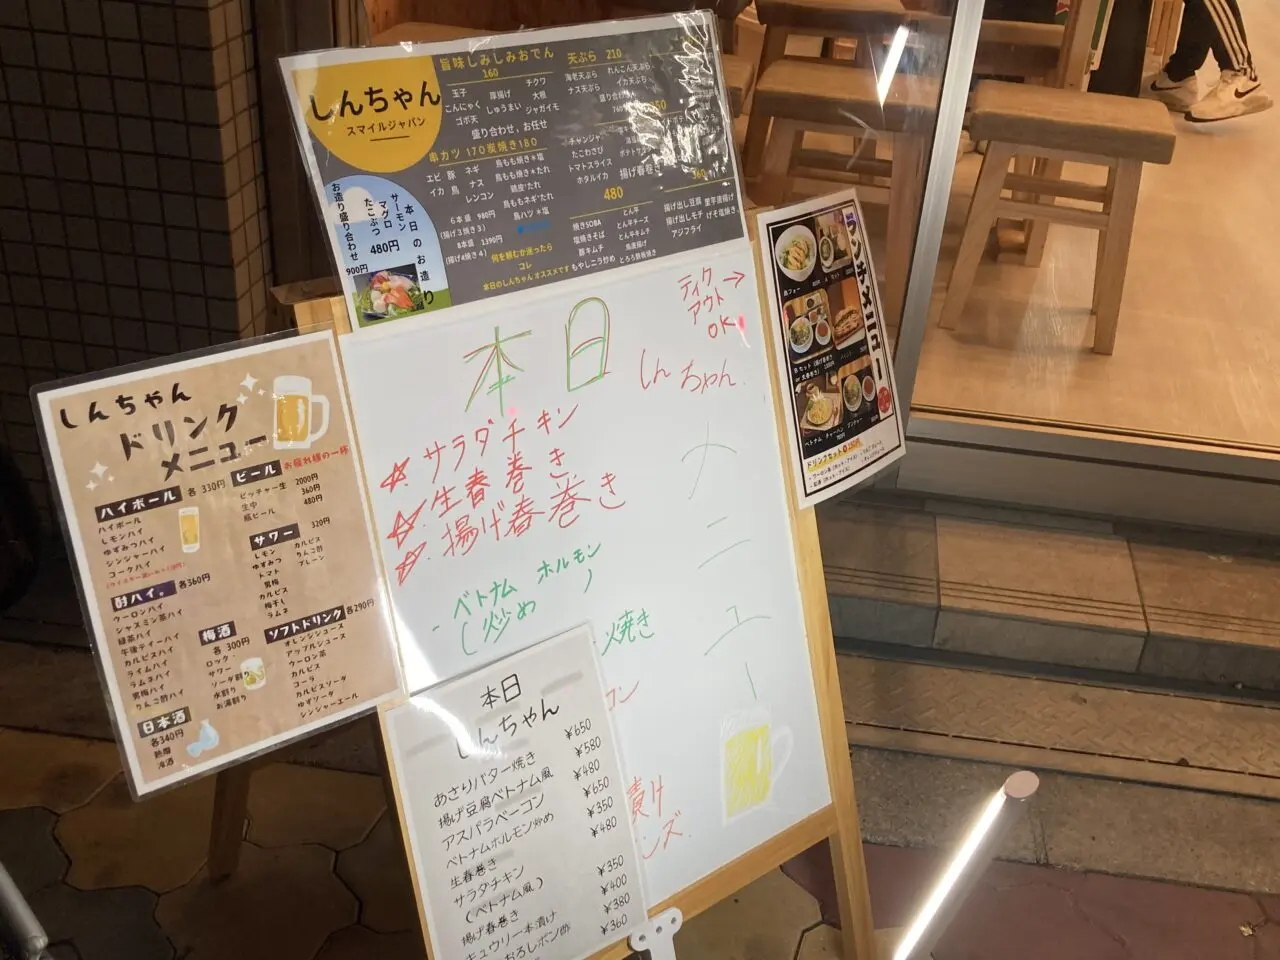 しんちゃん
スマイルジャパン
旨味しみしみおでん
160
玉子 厚揚げ チクワ
こんにゃく しゅうまい 大根
ゴボ天 ジャガイモ
盛り合わせ、お任せ
串カツ 170 炭焼き180
エビ 豚 ネギ
イカ 鳥 ナス
レンコン
鳥もも焼き*塩
鳥もも焼き*たれ
鳥皮*たれ
鳥ももネギ*たれ
鳥ハツ*塩
6本盛 980円
(揚げ3焼き3)
8本盛 1390円
(揚げ4焼き4)
何を頼むか迷ったら
コレ
本日のしんちゃんオススメです
天ぷら 210
海老天ぷら れんこん天ぷら
ナス天ぷら イカ天ぷら
チャンジャ
たこわさび
トマトスライス
ホタルイカ 揚げ春巻き
480
焼きSOBA とん平
塩焼きそば とん平チーズ
豚キムチ とん平キムチ
もやしニラ炒め
360
揚げ出し豆腐 里芋唐揚げ
揚げ出しモチ げそ塩焼き
アジフライ
本日のお造り
サーモン
マグロ
たこぶつ
480円
お造り盛り合わせ
900円
しんちゃん
ドリンク
メニュー
ハイボール 各 330円
ハイボール
レモンハイ
ゆずみつハイ
ジンジャーハイ
コークハイ
酎ハイ。 各360円
ウーロンハイ
ジャスミン茶ハイ
緑茶ハイ
午後ティーハイ
カルピスハイ
ライムハイ
ラムネハイ
男梅ハイ
りんご酢ハイ
日本酒
各340円
熱燗
冷酒
お疲れ様の一杯
ビール
ピッチャー生 2000円
生中 360円
瓶ビール 480円
サワー 320円
レモン カルピス
ゆずみつ りんご酢
トマト プレーン
男梅
カルピス
梅干し
ラムネ
梅酒
各 300円
ロック・
サワー
ソーダ割り
水割り
お湯割り
ソフトドリンク 各290円
オレンジジュース
アップルジュース
ウーロン茶
カルピス
コーラ
カルピスソーダ
ゆずソーダ
ジンジャーエール
本日
テイク
アウト
OK
しんちゃん
メニュー
サラダチキン
生春巻き
揚げ春巻き
ベトナム ホルモン
炒め
焼き
コン
漬け
ンズ
本日
しんちゃん
あさりバター焼き ¥650
揚げ豆腐ベトナム風 ¥580
アスパラベーコン ¥480
ベトナムホルモン炒め ¥650
生春巻き ¥350
サラダチキン ¥480
(ベトナム風)
揚げ春巻き ¥350
キュウリ一本漬け ¥400
おろしポン酢 ¥380
¥360
ランチメニュー
ベトナム チャーハン
ドリンクセット